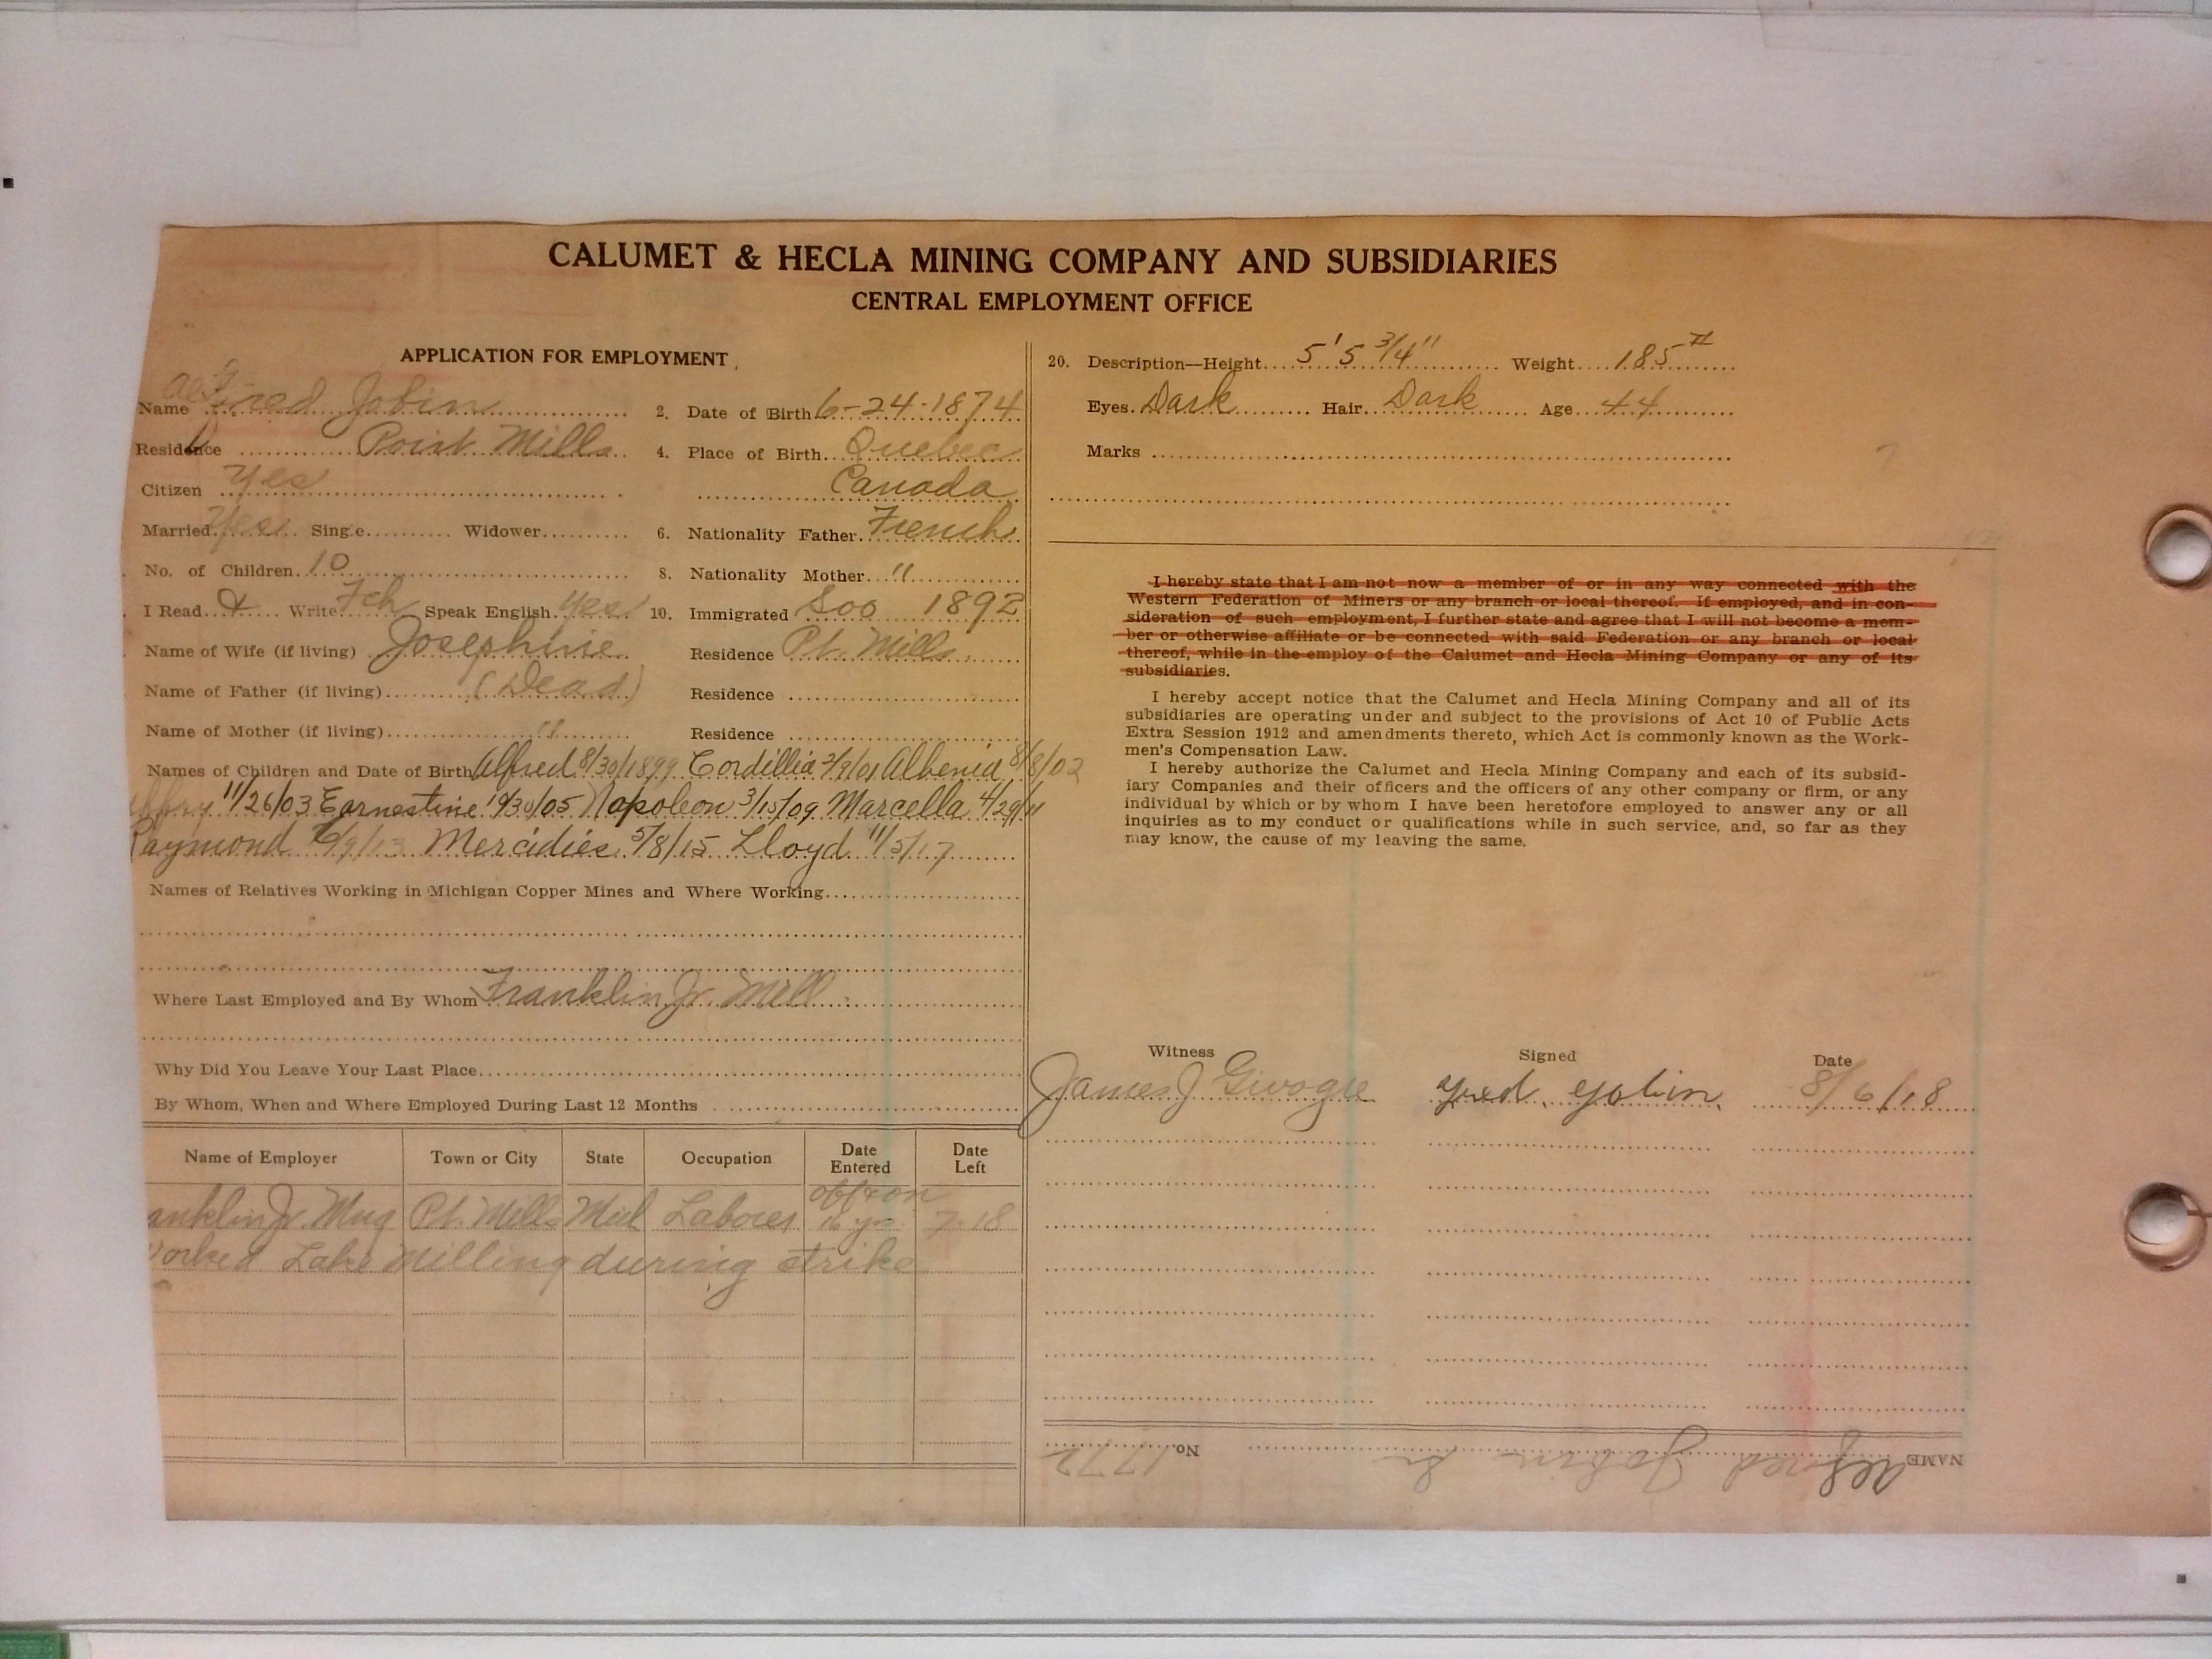 CALUMET & HECLA MINING COMPANY AND SUBSIDIARIES
CENTRAL EMPLOYMENT OFFICE
APPLICATION FOR EMPLOYMENT
Name Alfred Jobin 2. Date of Birth 6-24-1874
Residence Point Mills 4. Place of Birth Quebec
Citizen Yes Canada
Married Yes Single Widower 6. Nationality Father French
No. of Children 10 8. Nationality Mother "
I Read & Write Fch Speak English Yes 10. Immigrated Soo 1892
Name of Wife (if living) Josephine Residence Pt. Mills
Name of Father (if living) (Dead) Residence
Name of Mother (if living) " Residence
Names of Children and Date of Birth Alfred 8/30/1899 Cordillia 3/9/01 Albenia 8/8/02
11/26/03 Earnestine 9/30/05 Napoleon 3/15/09 Marcella 4/29/11
Raymond /9/13 Mercidies 5/8/15 Lloyd 11/5/17
Names of Relatives Working in Michigan Copper Mines and Where Working
Where Last Employed and By Whom Franklin Jr. Mill
Why Did You Leave Your Last Place
By Whom, When and Where Employed During Last 12 Months
Name of Employer Town or City State Occupation Date Entered Date Left
anklin Jr. Mng Pt. Mills Mich Laborer off & on 16 yrs 7-18
orked Lake Milling during strike
20. Description—Height 5' 5 3/4" Weight 185#
Eyes Dark Hair Dark Age 44
Marks
I hereby state that I am not now a member of or in any way connected with the
Western Federation of Miners or any branch or local thereof. If employed, and in con-
sideration of such employment, I further state and agree that I will not become a mem-
ber or otherwise affiliate or be connected with said Federation or any branch or local
thereof, while in the employ of the Calumet and Hecla Mining Company or any of its
subsidiaries.
I hereby accept notice that the Calumet and Hecla Mining Company and all of its
subsidiaries are operating under and subject to the provisions of Act 10 of Public Acts
Extra Session 1912 and amendments thereto, which Act is commonly known as the Work-
men's Compensation Law.
I hereby authorize the Calumet and Hecla Mining Company and each of its subsid-
iary Companies and their officers and the officers of any other company or firm, or any
individual by which or by whom I have been heretofore employed to answer any or all
inquiries as to my conduct or qualifications while in such service, and, so far as they
may know, the cause of my leaving the same.
Witness Signed Date
James J Givogre Fred Jobin 8/6/18
NAME Alfred Jobin Sr No. 1772